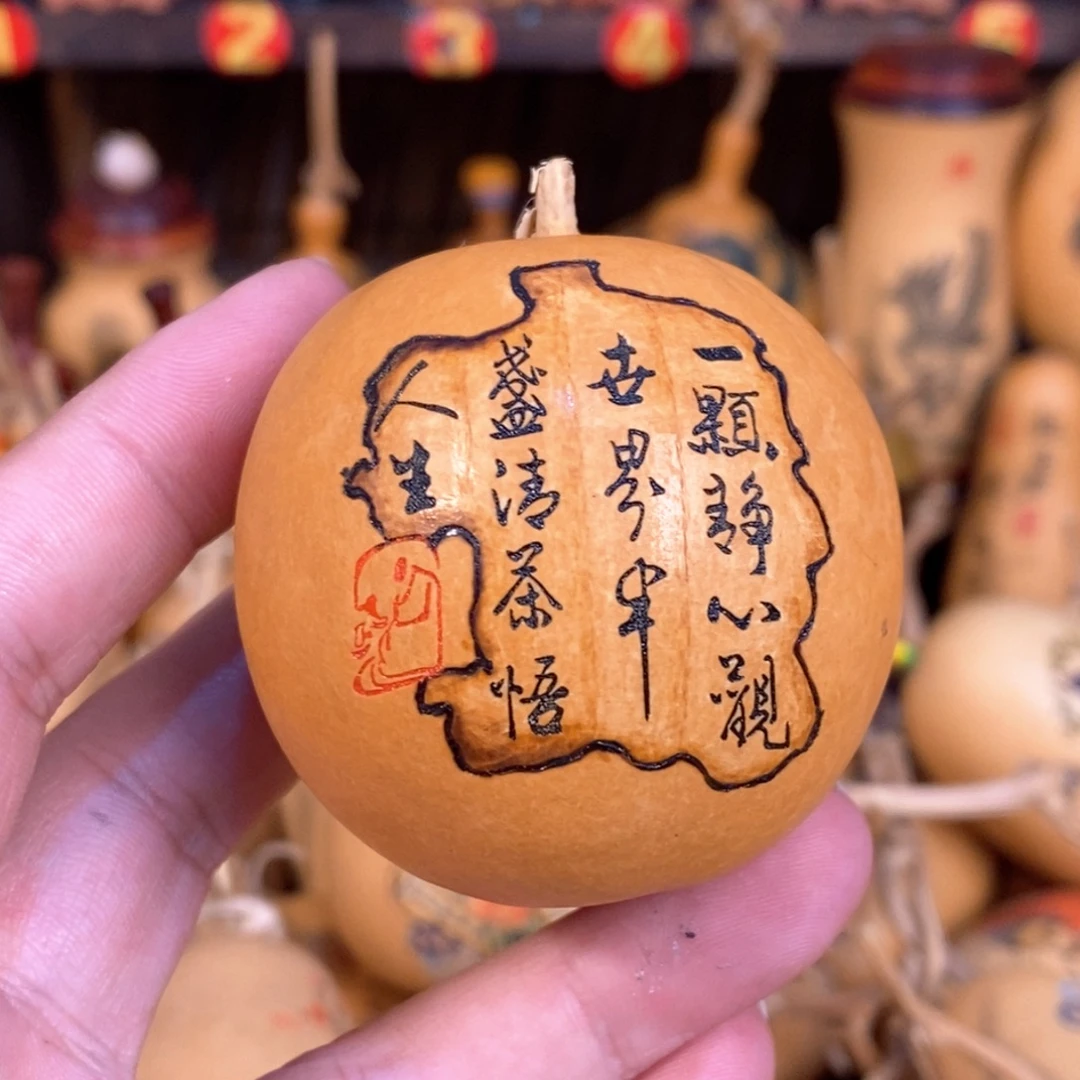 一顆靜心觀
世界半
盛清茶悟
人生
2
3
4
5